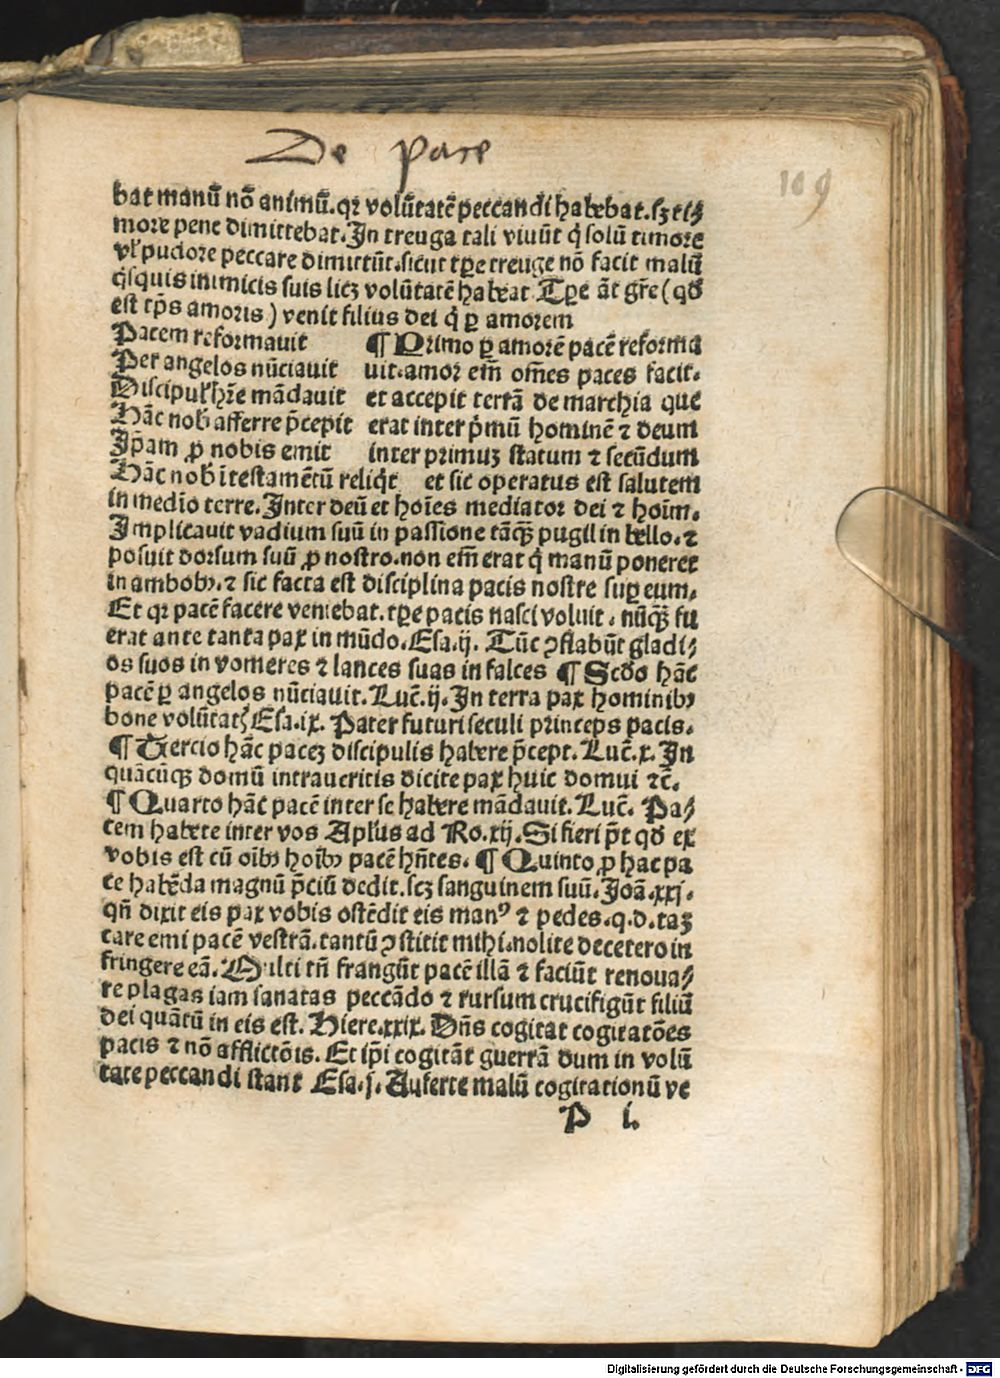 De pace
109
bat manū nō animū. qꝛ volūtatē peccandi habebat. sꝫ ti⸗
more pene dimittebat. In treuga tali viuūt q̇ solū timore
vl' pudore peccare dimittūt. sicut tꝑe treuge nō facit malū
q̇squis inimicis suis licꝫ volūtatē habeat Tꝑe āt gr̄e (qđ
est tp̄s amoris) venit filius dei q̇ ꝑ amorem
Pacem reformauit
Per angelos nūciauit
Discipul' hr̄e mādauit
Hāc nob̄ afferre p̄cepit
Ip̄am ꝓ nobis emit
Hāc nob̄ ī testamētū reliq̇t
¶ Primo ꝑ amorē pacē reforma
uit. amor em̄ om̄es paces facit.
et accepit terrā de marchia que
erat inter p̄mū hominē ⁊ deum
inter primuꝫ statum ⁊ secūdum
et sic operatus est salutem
in medio terre. Inter deū et hoīes mediator dei ⁊ hoīm.
Implicauit vadium suū in passione tāqꝫ pugil in bello. ⁊
posuit dorsum suū ꝓ nostro. non em̄ erat q̇ manū poneret
in ambobꝰ. ⁊ sic facta est disciplina pacis nostre suꝑ eum.
Et qꝛ pacē facere veniebat. tꝑe pacis nasci voluit. nūqꝫ fu
erat ante tanta pax in mūdo. Esa. ij. Tūc ꝯflabūt gladi⸗
os suos in vomeres ⁊ lances suas in falces ¶ Scđo hāc
pacē ꝑ angelos nūciauit. Luč. ij. In terra pax hominibꝰ
bone volūtatꝭ Esa. ix. Pater futuri seculi princeps pacis.
¶ Tercio hāc paceꝫ discipulis habere p̄cept. Luč. x. In
quācūqꝫ domū intraueritis dicite pax huic domui ⁊č.
¶ Quarto hāc pacē inter se habere mādauit. Luč. Pa⸗
cem habete inter vos Apl'us ad Ro. xij. Si fieri p̄t qđ ex
vobis est cū oībꝰ hoībꝰ pacē hn̄tes. ¶ Quinto ꝓ hac pa
ce habēda magnū p̄ciū dedit. scꝫ sanguinem suū. Joā. xxj.
qn̄ dixit eis pax vobis ostēdit eis manꝰ ⁊ pedes. q. d. taꝫ
care emi pacē vestrā. tantū ꝯstitit mihi. nolite decetero in
fringere eā. Multi tn̄ frangūt pacē illā ⁊ faciūt renoua⸗
re plagas iam sanatas peccādo ⁊ rursum crucifigūt filiū
dei quātū in eis est. Hiere. xxix. Dn̄s cogitat cogitatōes
pacis ⁊ nō afflictōis. Et ip̄i cogitāt guerrā dum in volū
tate peccandi stant Esa. j. Auferte malū cogitationū ve
P i.
Digitalisierung gefördert durch die Deutsche Forschungsgemeinschaft - DFG